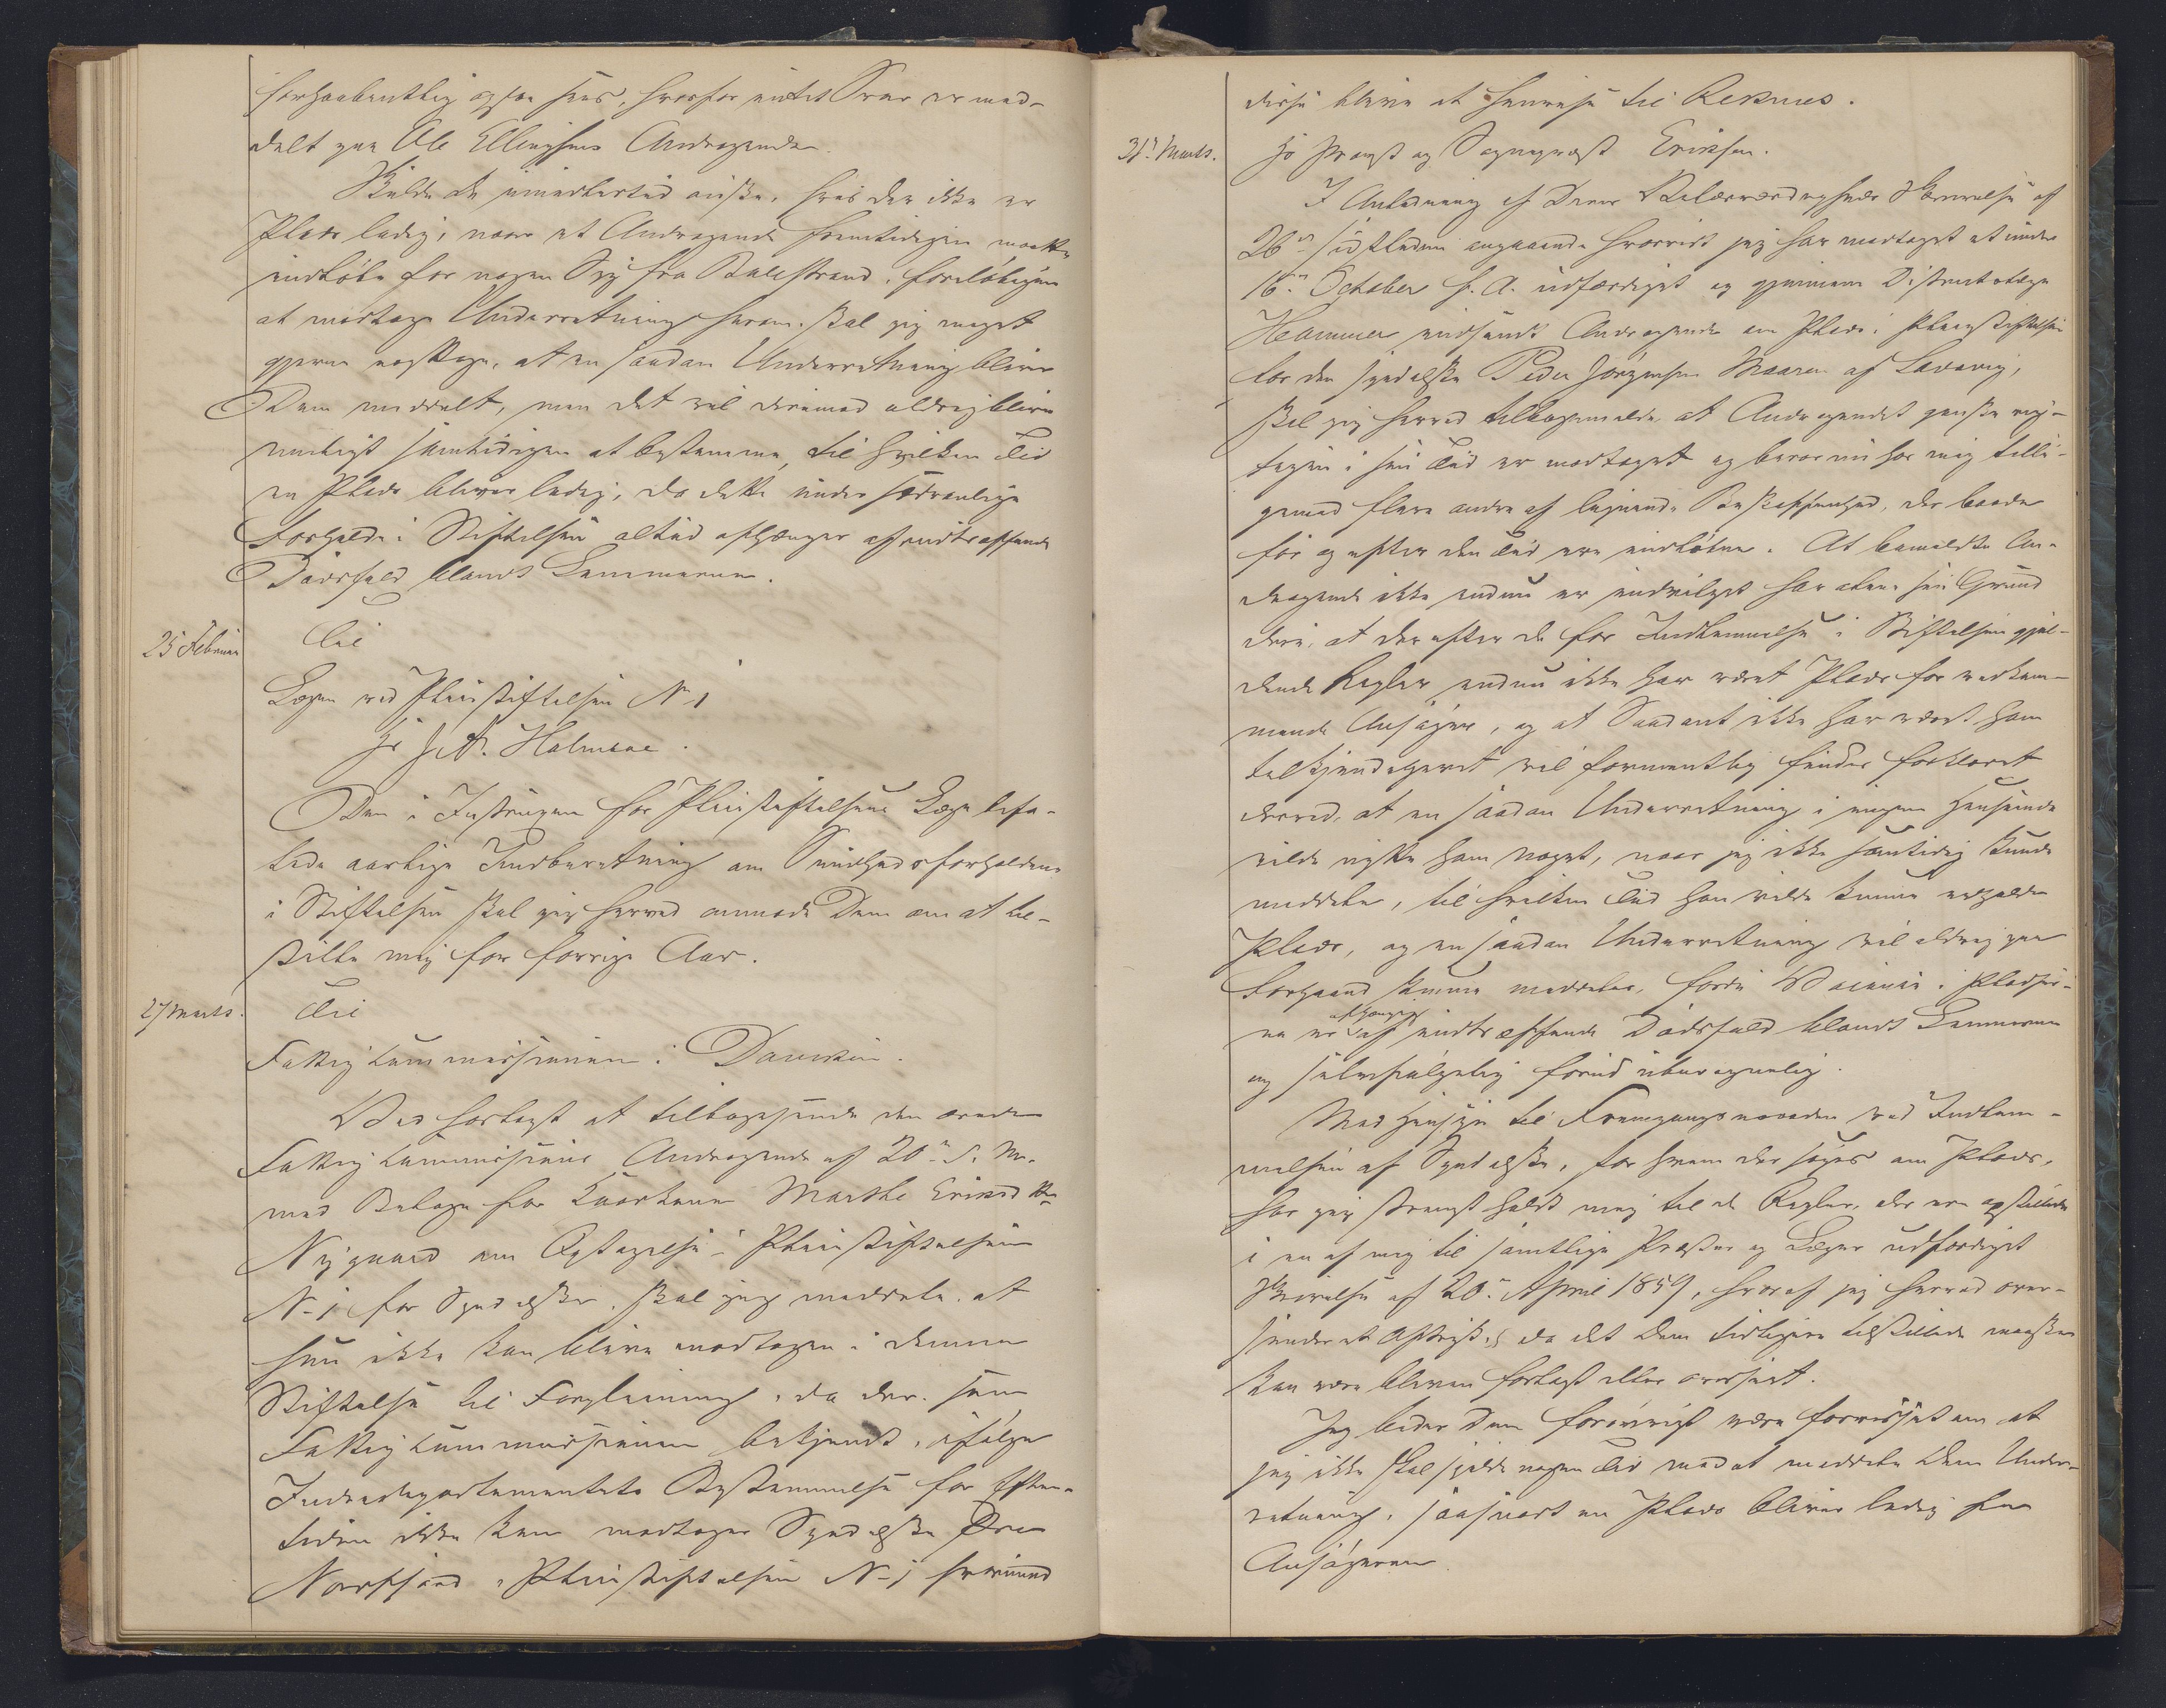 forhaabentlig ogsaa sees, hvorfor intet Svar er med-
delt paa Ole Ellingsens Andragende.
Skulde De imidlertid ønske, hvis der ikke er
Plads ledig, naar et Andragende fremtidigen maatte
indløbe for nogen Syg fra Balestrand, foreløbigen
at modtage Underretning herom, skal jeg meget
gjerne iagttage, at en saadan Underretning bliver
Dem meddelt, men det vil derimod aldrig blive
muligt samtidigen at bestemme, til hvilken Tid
en Plads bliver ledig, da dette under sædvanlige
Forholde i Stiftelsen altid afhænger af indtræffende
Dødsfald blandt Lemmerne.
25 Februar
Til
Lægen ved Pleiestiftelsen No 1
Hr J. A. Holmboe.
Den i Instruxen for Pleiestiftelsens Læge befa-
lede aarlige Indberetning om Sundhedsforholdene
i Stiftelsen skal jeg herved anmode Dem om at til-
stille mig for forrige Aar.
27 Marts.
Til
Fattigkommissionen i Daviken.
Ved hoslagt at tilbagesende den ærede
Fattigkommissions Andragende af 20de d. M.
med Bilage for Enkekone Marthe Eriksd
Nygaard om Optagelse i Pleiestiftelsen
No 1 for Spedalske, skal jeg meddele, at
hun ikke kan blive modtagen i denne
Stiftelse til Forpleining, da der, som
Fattigkommissionen bekjendt, ifølge
Indredepartementets Bestemmelse for Efter-
tiden ikke kan modtages Spedalske fra
Nordfjord i Pleiestiftelsen No 1 hvorimod
disse blive at henvise til Reknes.
31te Marts.
Hr Provst og Sognepræst Eriksen.
I Anledning af Deres Velærværdigheds Skrivelse af
26de sidstleden angaaende hvorvidt jeg har modtaget et under
16de October f. A. udfærdiget og gjennem Districtslæge
Hammer indsendt Andragende om Plads i Pleiestiftelsen
for den spedalske Peder Jørgensen Maaren af Ladvig,
skal jeg herved tilbagemelde, at Andragendet ganske rig-
tigen i sin Tid er modtaget og beror nu hos mig tilli-
gemed flere andre af lignende Beskaffenhed, der baade
før og efter den Tid ere indløbne. At bemeldte An-
dragende ikke endnu er indvilget har alene sin Grund
deri, at der efter de for Indlemmelse i Stiftelsen gjæl-
dende Regler endnu ikke har været Plads for vedkom-
mende Ansøger, og at Saadant ikke har været ham
tilkjendegivet vil formentlig findes forklaret
derved, at en saadan Underretning i ingen Henseende
vilde nytte ham noget, naar jeg ikke samtidig kunde
meddele, til hvilken Tid han vilde kunne erholde
Plads, og en saadan Underretning vil aldrig paa
Forhaand kunne meddeles, fordi Vacance i Pladse-
ne er afhængig af indtræffende Dødsfald blandt Lemmerne
og selvfølgelig forud uberegnelig.
Med Hensyn til Fremgangsmaaden ved Indlem-
melsen af Spedalske, for hvem der søges om Plads,
har jeg strengt holdt mig til de Regler, der ere opstillede
i en af mig til samtlige Præster og Læger udfærdiget
Skrivelse af 20de April 1859, hvoraf jeg herved over-
sender et Aftryk, da det Dem tidligere tilstillede maaske
kan være bleven forlagt eller overseet.
Jeg beder Dem forøvrigt være forvisset om at
jeg ikke skal spilde nogen Tid med at meddele Dem Under-
retning, saasnart en Plads bliver ledig for
Ansøgeren